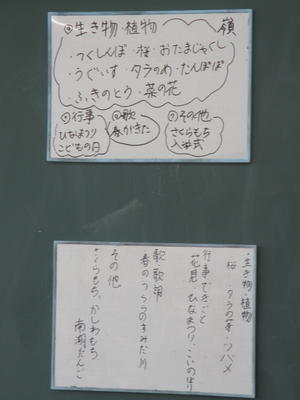 ◎生き物・植物
嶺
・つくしんぼ・桜・おたまじゃくし
・うぐいす・タラのめ・たんぽぽ
・ふきのとう・菜の花
◎行事
ひなまつり
こどもの日
◎歌
春がきた
◎その他
さくらもち
入学式
・生き物・植物
桜・タラの芽・ツバメ
行事・できごと
花見・ひなまつり・こいのぼり
歌・歌謡
・春のうららのすみだ川
その他
さくらもち、かしわもち
南湖だんご